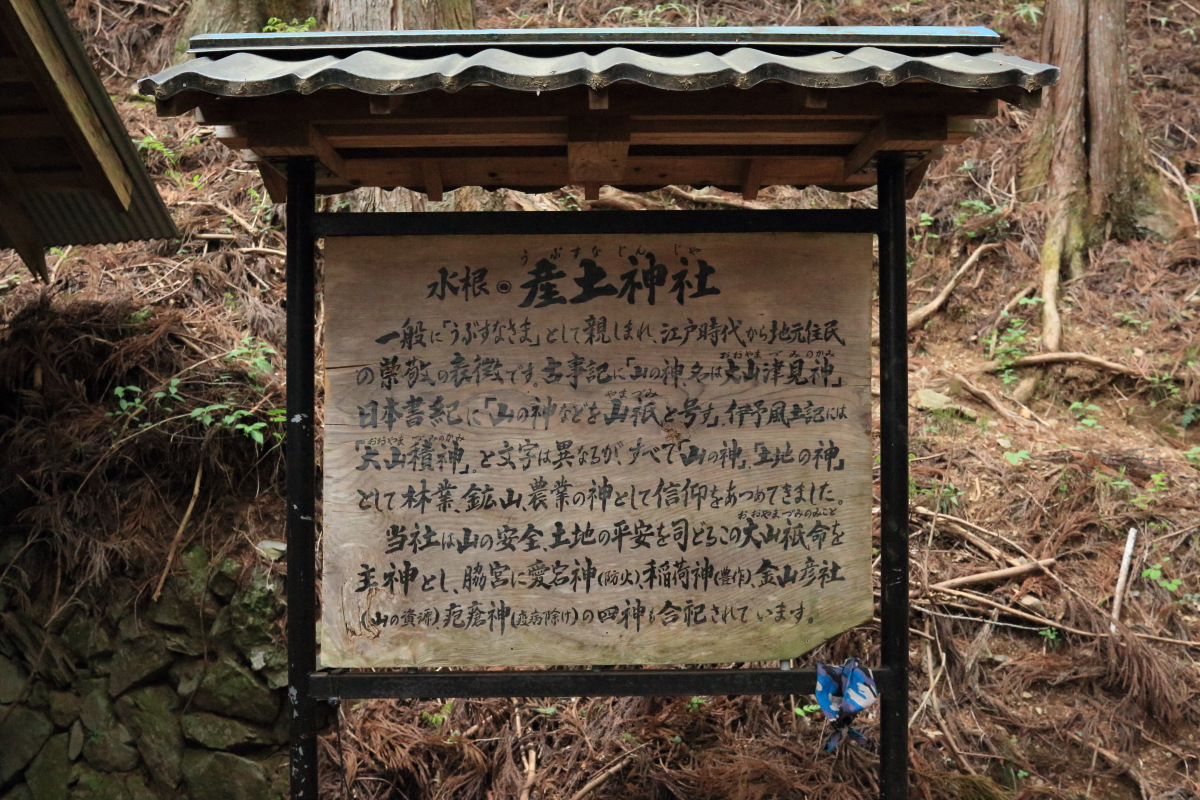 うぶすなじんじゃ
水根◉産土神社
一般に「うぶすなさま」として親しまれ、江戸時代から地元住民
の崇敬の表徴です。古事記に「山の神、名は大山津見神」
おおやまづみのかみ
日本書紀に「山の神などを山祇と号す」、伊予風土記には
やまづみ
「大山積神」、と文字は異なるが、すべて「山の神」、「土地の神」
おおやまづみのかみ
として林業、鉱山、農業の神として信仰をあつめてきました。
当社は山の安全、土地の平安を司どるこの大山祇命を
おおやまづみのみこと
主神とし、脇宮に愛宕神(防火)、稲荷神(豊作)、金山彦社
(山の資源)疱瘡神(疫病除け)の四神も合祀されています。